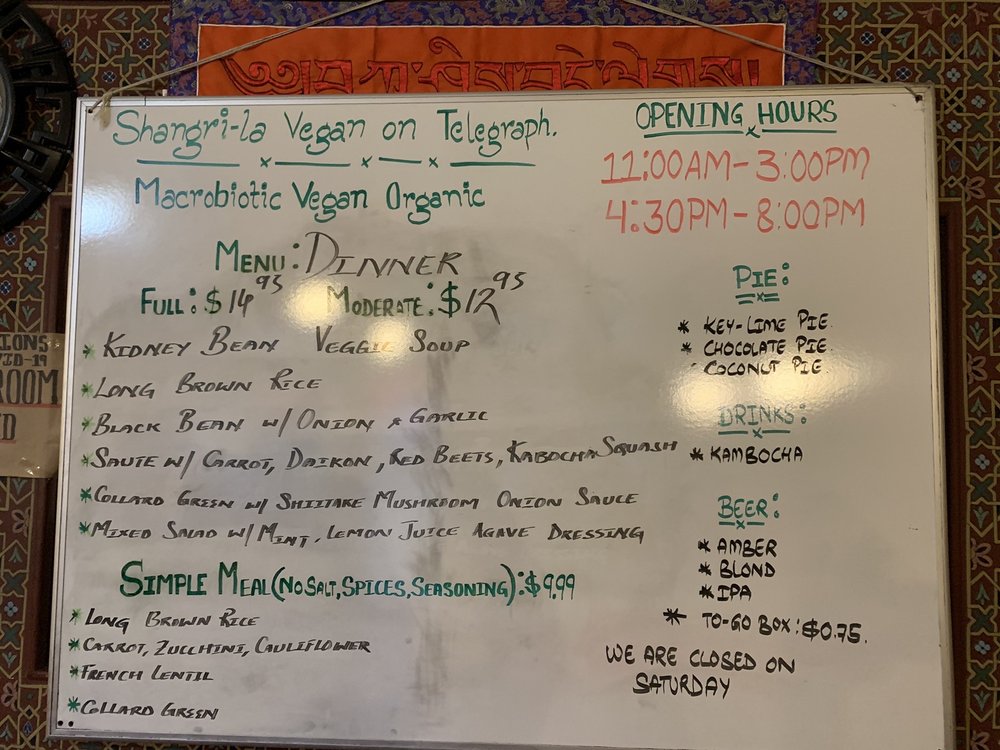 Shangri-la Vegan on Telegraph.
Macrobiotic Vegan Organic
MENU: DINNER
FULL: $14.95 MODERATE: $12.95
* KIDNEY BEAN VEGGIE SOUP
* LONG BROWN RICE
* BLACK BEAN W/ ONION & GARLIC
* SAUTE W/ CARROT, DAIKON, RED BEETS, KABOCHA SQUASH
* COLLARD GREEN W/ SHIITAKE MUSHROOM ONION SAUCE
* MIXED SALAD W/ MINT, LEMON JUICE AGAVE DRESSING
SIMPLE MEAL (NO SALT, SPICES, SEASONING): $9.99
* LONG BROWN RICE
* CARROT, ZUCCHINI, CAULIFLOWER
* FRENCH LENTIL
* COLLARD GREEN
OPENING HOURS
11:00AM-3:00PM
4:30PM-8:00PM
PIE:
* KEY-LIME PIE.
* CHOCOLATE PIE.
COCONUT PIE.
DRINKS:
* KAMBOCHA
BEER:
* AMBER
* BLOND
* IPA
* TO-GO BOX: $0.75.
WE ARE CLOSED ON
SATURDAY
IONS
VID-19
ROOM